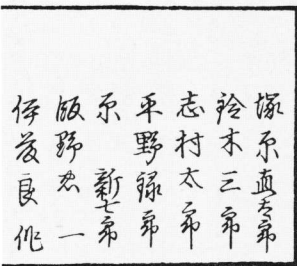 塚原直太郎
鈴木三郎
志村太郎
平野録郎
原新七郎
飯野忠一
伊藤良作